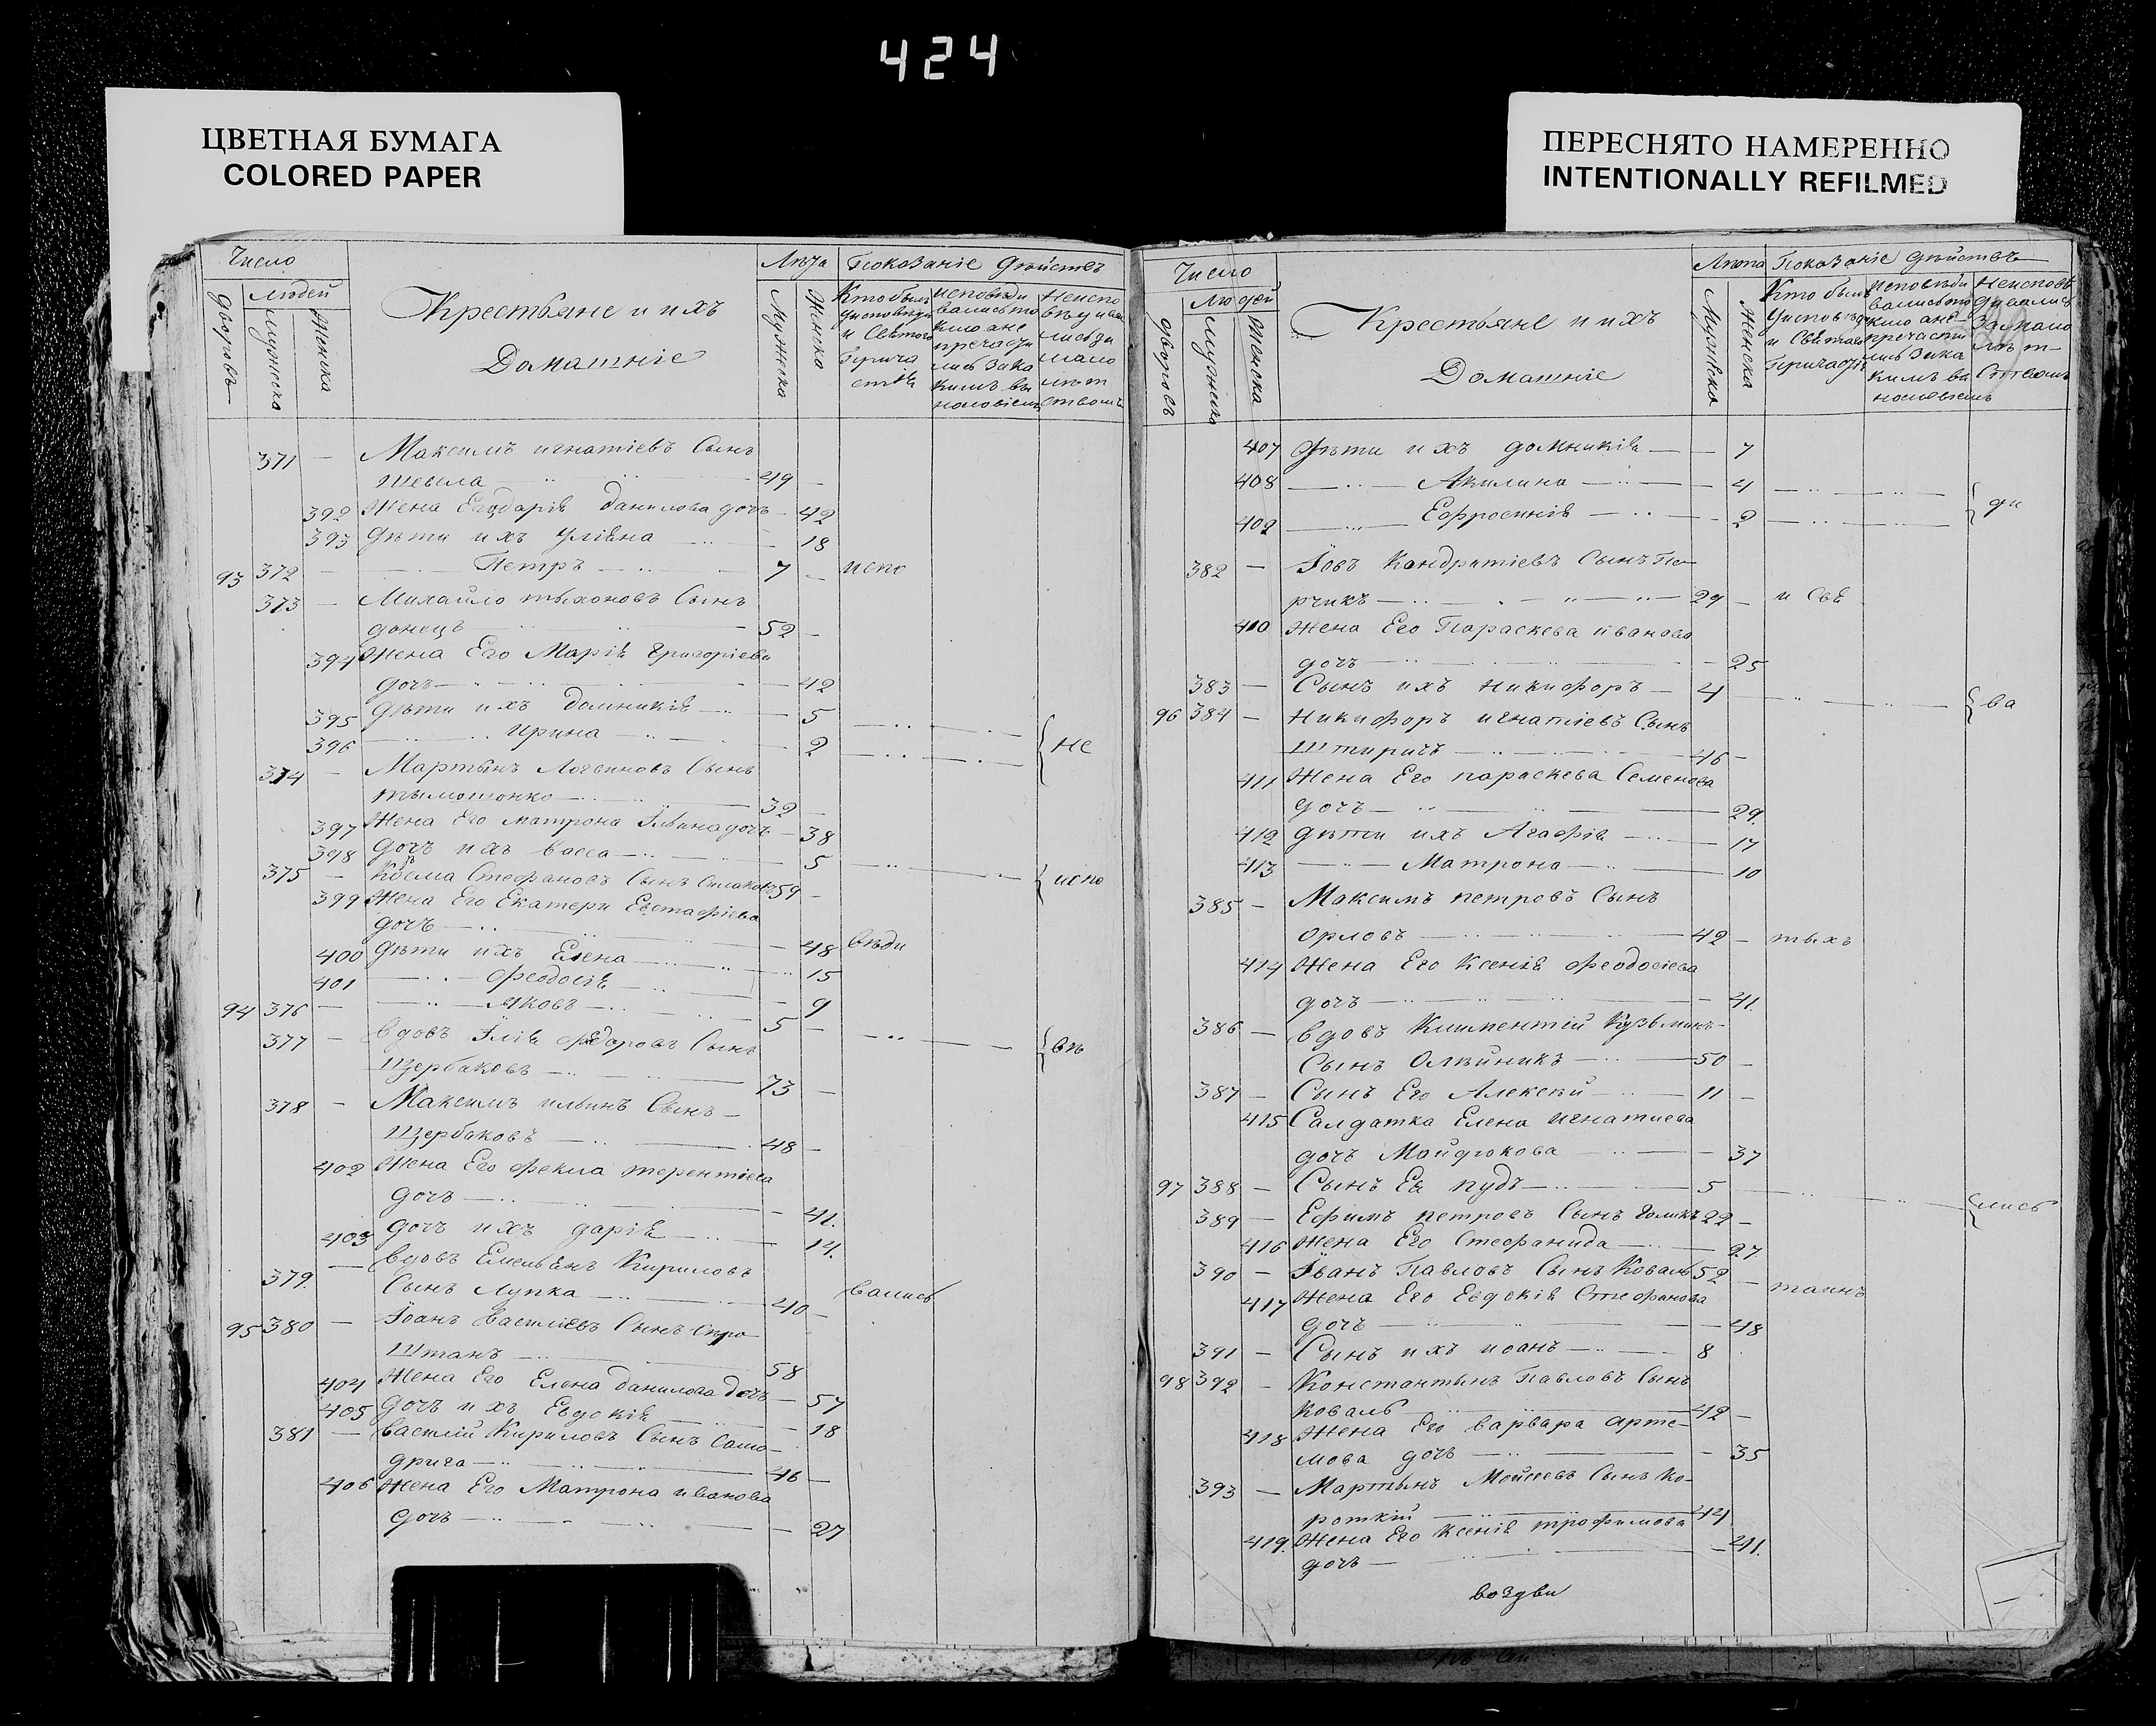 424
ЦВЕТНАЯ БУМАГА
COLORED PAPER
ПЕРЕСНЯТО НАМЕРЕННО
INTENTIONALLY REFILMED
Число
Людей
Дворовъ
Мужеска
Женска
Крестьяне и ихъ
Домашніе
Лѣта
Мужска
Женска
Показаніе действъ
371 Максимъ игнатіевъ Сынъ
49
392 Жена данилова дочь 42
393 Дѣти ихъ 18
93 372 Петръ 7 испо
373 Михайло тыхоновъ Сынъ
донецъ 52
394 Жена Его Марія Григоріева
дочь 42
395 Дѣти ихъ домникія 5
396 ирина 2 не
374 Мартынъ Логвиновъ Сынъ
тымошонко 32
397 Жена Его матрона Ильина дочь 38
398 Дочь ихъ васса 5
375 Козма Стефановъ Сынъ 59 испо
399 Жена Его Екатери Евстафіева
дочь 48 вѣди
400 Дѣти ихъ Елена 15
401 феодосія 9
94 376 Яковъ 5 въ
377 вдовъ Илія Федоровъ Сынъ
Щербаковъ 73
378 Максимъ ильинъ Сынъ
Щербаковъ 48
402 Жена Его фекла терентіева
дочь 41.
403 Дочь ихъ дарія 14.
379. вдовъ Емельянъ Кириловъ
Сынъ Лупка 40 вались
95 380 Іоанъ василіевъ Сынъ
штанъ 58
404 Жена Его Елена данилова дочь 57
405 Дочь ихъ Евдокія 18
381 василій Кириловъ Сынъ Само
дрига 46
406 Жена Его Матрона иванова
дочь 27
Число
Людей
Дворовъ
Мужеска
Женска
Крестьяне и ихъ
Домашніе
Лѣта
Мужеска
Женска
Показаніе дѣйствъ
407 Дѣти ихъ домникія 7
408 Акилина 4
409 Ефросинія 2 ди
382 Іовъ Кондратіевъ Сынъ Пе
рчикъ 29 и Свя
410 Жена Его Параскева иванова
дочь 25
383 Сынъ ихъ никифоръ 4 ва
96 384 никифоръ игнатіевъ Сынъ
46
411 Жена Его параскева Семенова
дочь 29.
412 Дѣти ихъ Агафія 17
413 Матрона 10
385 Максимъ петровъ Сынъ
орловъ 42 тыхъ
414 Жена Его Ксенія феодосіева
дочь 41.
386 вдовъ Климентій Кузьминъ
Сынъ Олѣйникъ 50
387 Сынъ Его Алексѣй 11
415 Салдатка Елена игнатиева
дочь Мойдюкова 37
97 388 Сынъ Ея пудъ 5 лись
389 Ефимъ петровъ Сынъ 29
416 Жена Его Стефанида 27
390 Іванъ Павловъ Сынъ Коваль 52 таинъ
417 Жена Его Евдокія Стефанова
дочь 48
391 Сынъ ихъ иоанъ 8
98 392 Константынъ Павловъ Сынъ
коваль 42
418 Жена Его варвара арте
мова дочь 35
393 Мартынъ Мойсеевъ Сынъ Ко
роткій 44
419. Жена Его Ксенія трофимова
дочь 41.
воздви